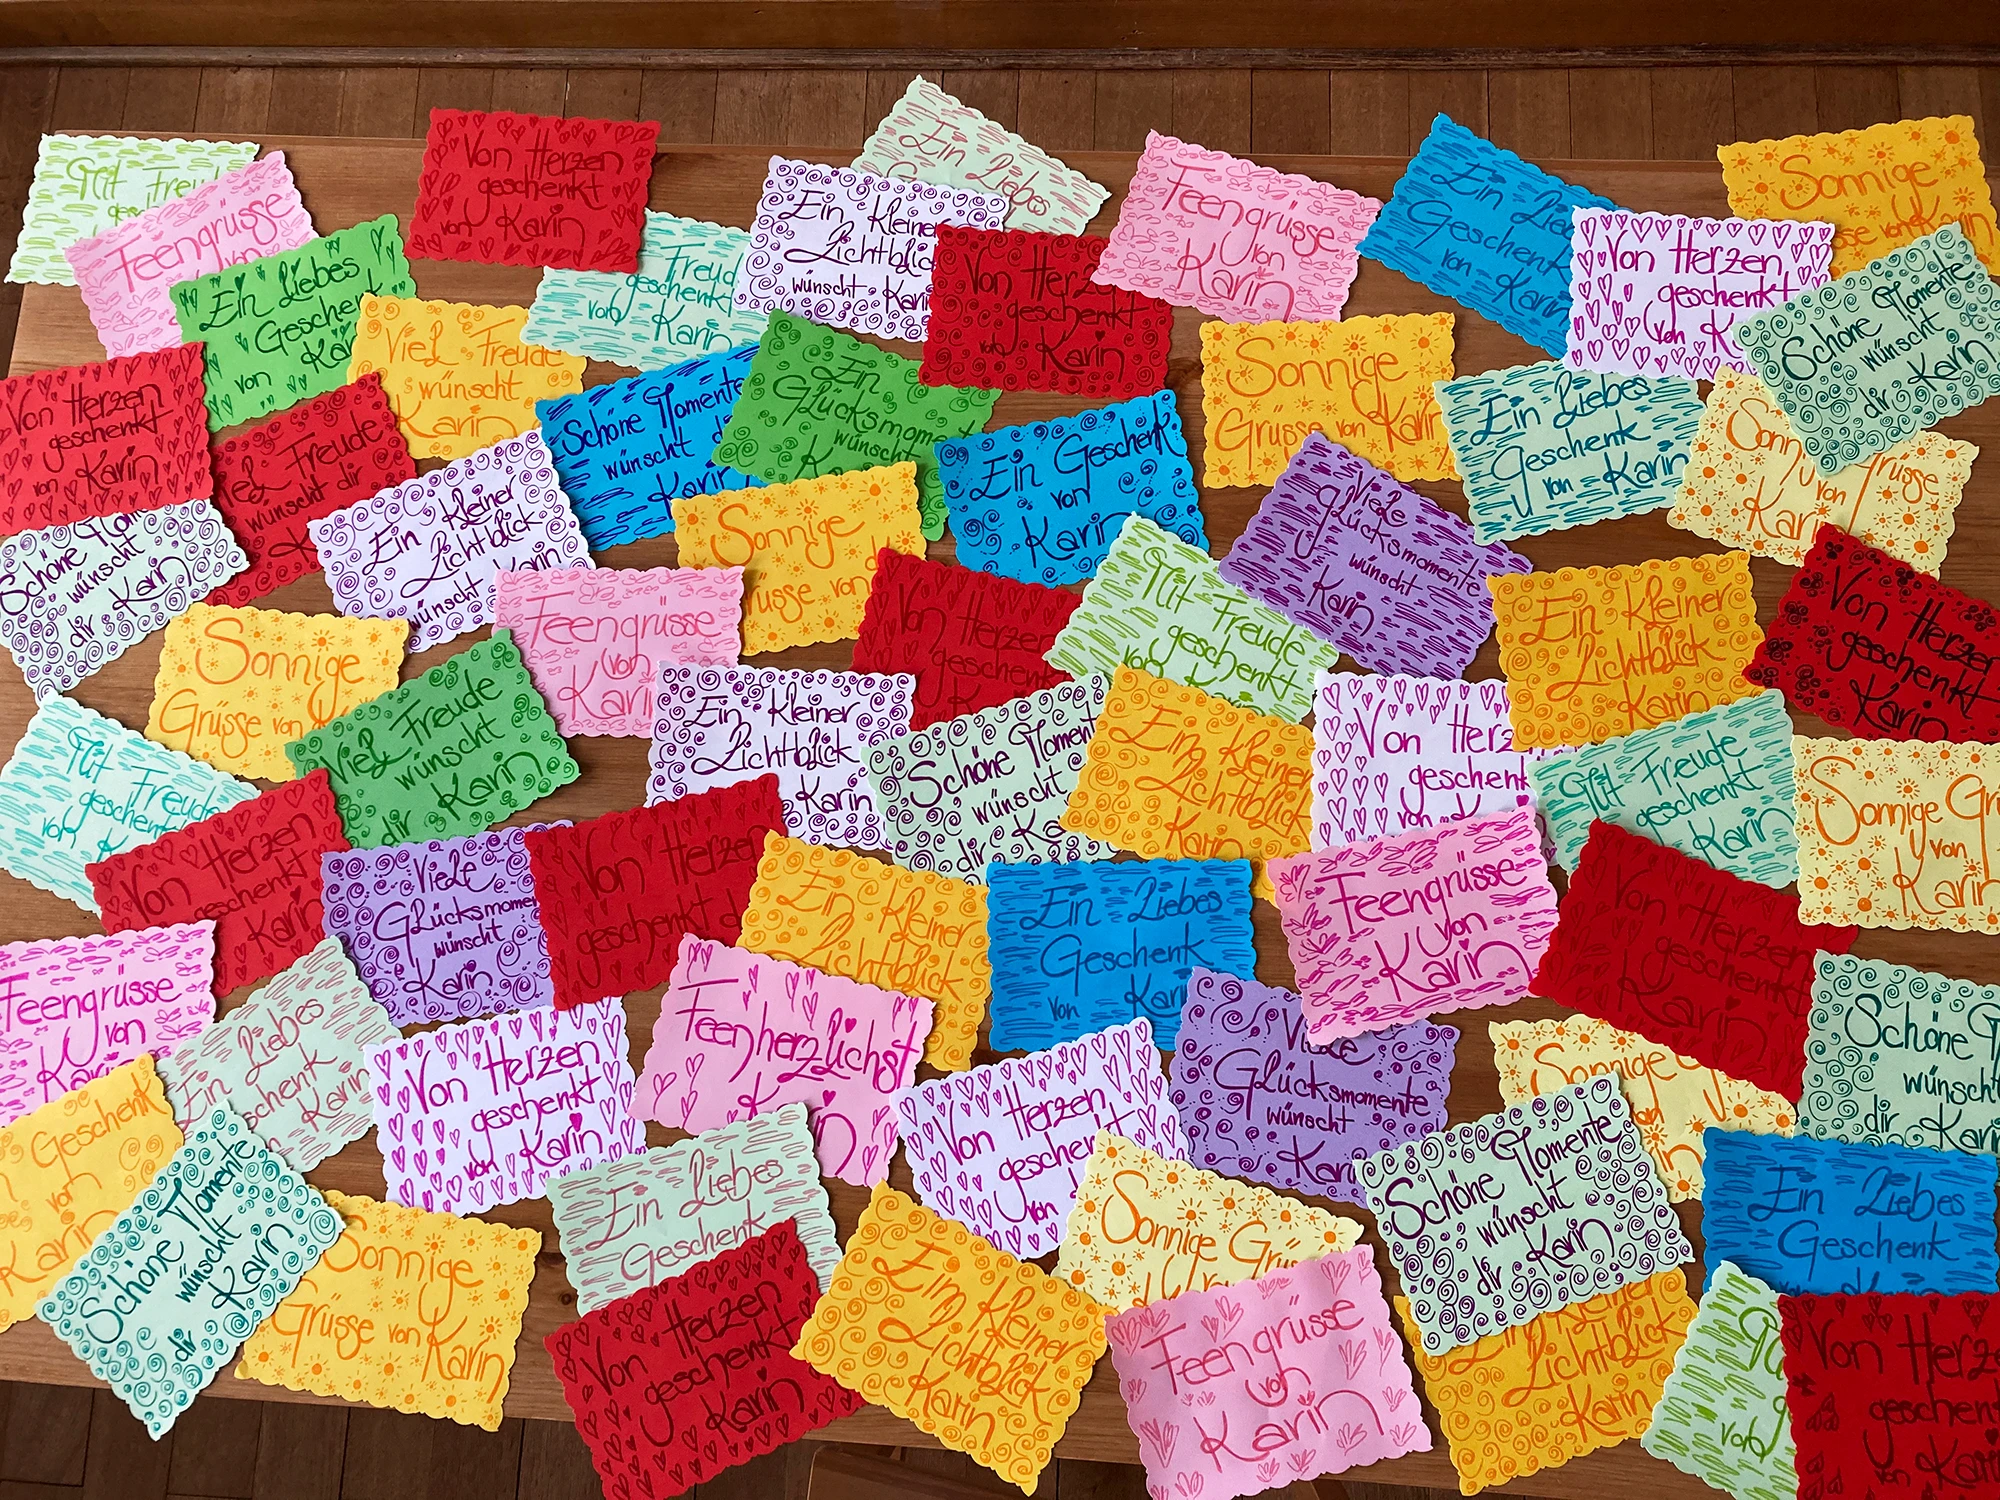 Mit Freude
Feengrüsse
von
Ein Liebes
Geschenk
von Karin
Von Herzen
geschenkt
von Karin
Freude
geschenkt
von Karin
Ein kleiner
Lichtblick
wünscht Karin
Ein Liebes
Von Herzen
geschenkt
von Karin
Feengrüsse
von
Karin
Ein Liebes
Geschenk
von Karin
Von Herzen
geschenkt
von
Sonnige
Grüsse von Karin
Schöne Momente
wünscht
dir Karin
Von Herzen
geschenkt
von Karin
Viel Freude
wünscht
Karin
Viel Freude
wünscht dir
Schöne Momente
wünscht
Karin
Ein
Glücksmoment
wünscht
Sonnige
Grüsse von Karin
Ein Liebes
Geschenk
von Karin
Sonnige Grüsse
von
Karin
Schöne
wünscht
dir Karin
Ein kleiner
Lichtblick
wünscht Karin
Sonnige
Grüsse von
Ein Geschenk
von
Karin
Viele
Glücksmomente
wünscht
Karin
Sonnige
Grüsse von
Feengrüsse
von
Karin
Von Herzen
geschenkt
Mit Freude
geschenkt
von
Ein kleiner
Lichtblick
Karin
Von Herzen
geschenkt
Karin
Mit Freude
geschenkt
von
Viel Freude
wünscht
dir Karin
Ein kleiner
Lichtblick
Karin
Schöne Momente
wünscht
dir
Ein kleiner
Lichtblick
Karin
Von Herzen
geschenkt
von
Mit Freude
geschenkt
Karin
Sonnige
von
Karin
Von Herzen
geschenkt
Karin
Viele
Glücksmomente
wünscht
Karin
Von Herzen
geschenkt
Ein kleiner
Lichtblick
Ein Liebes
Geschenk
von Karin
Feengrüsse
von
Karin
Von Herzen
geschenkt
Karin
Schöne
wünscht
dir Karin
Feengrüsse
von
Karin
Ein Liebes
Geschenk
Karin
Von Herzen
geschenkt
von Karin
Feenherzlichst
Karin
Von Herzen
geschenkt
von
Viele
Glücksmomente
wünscht
Karin
Sonnige
Geschenk
von
Karin
Schöne Momente
wünscht
dir Karin
Sonnige
Grüsse von Karin
Ein Liebes
Geschenk
Sonnige
Schöne Momente
wünscht
dir Karin
Ein Liebes
Geschenk
Von Herzen
geschenkt
Karin
Ein kleiner
Lichtblick
Karin
Feengrüsse
von
Karin
Lichtblick
Karin
von
Von Herzen
geschenkt
von Karin